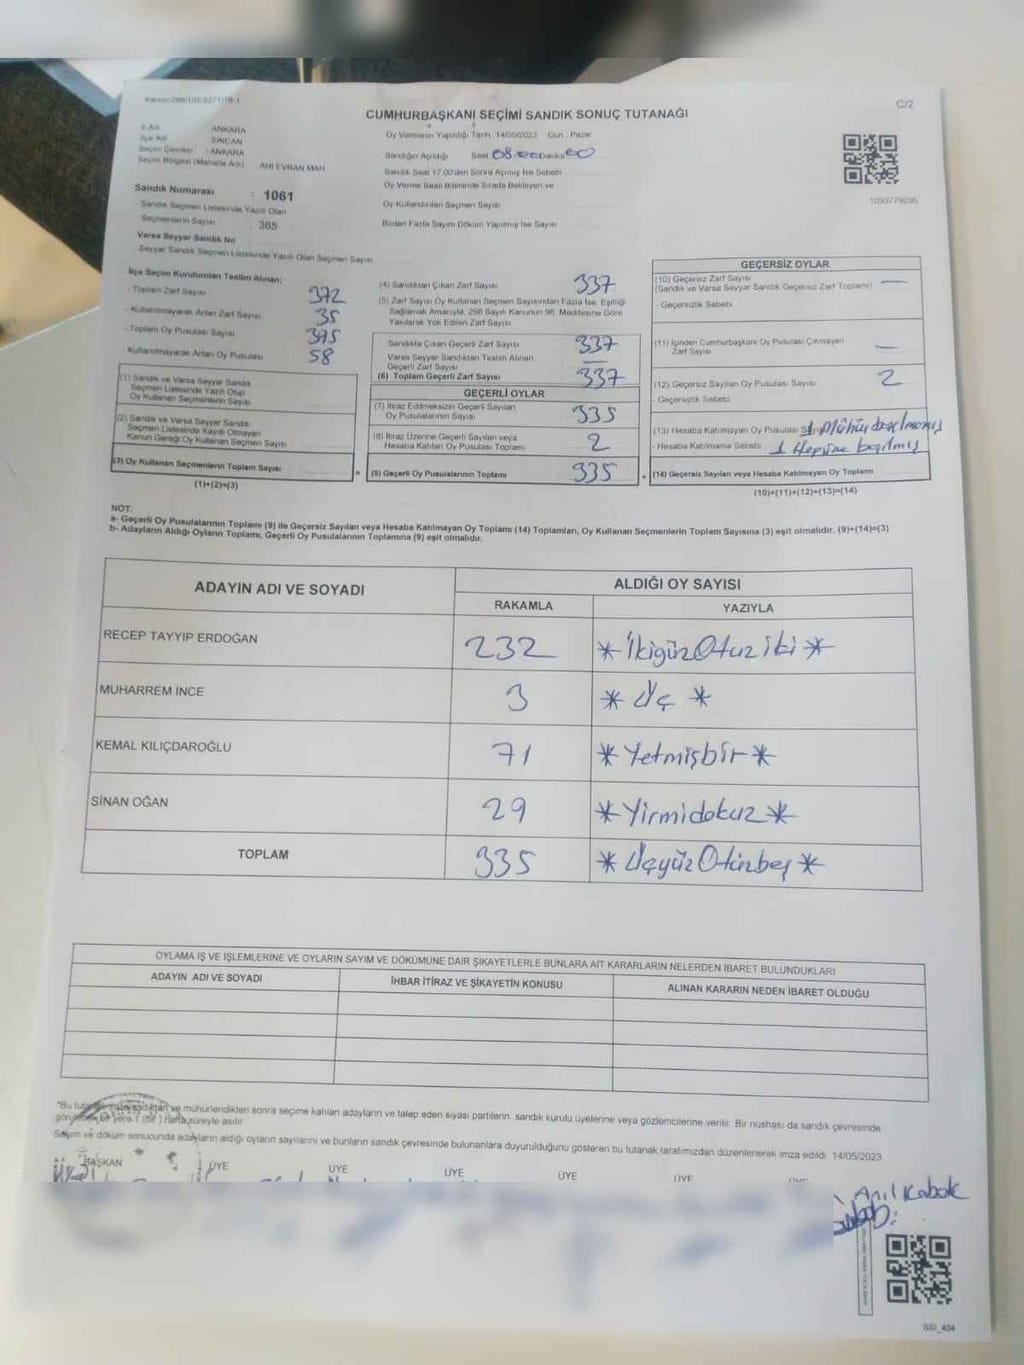 C/2
CUMHURBAŞKANI SEÇİMİ SANDIK SONUÇ TUTANAĞI
İl Adı ANKARA
İlçe Adı SİNCAN
Seçim Çevresi : ANKARA
Seçim Bölgesi (Mahalle Adı) AHİ EVRAN MAH
Sandık Numarası : 1061
- Sandık Seçmen Listesinde Yazılı Olan
Seçmenlerin Sayısı : 365
Varsa Seyyar Sandık No
- Seyyar Sandık Seçmen Listesinde Yazılı Olan Seçmen Sayısı
Oy Vermenin Yapıldığı Tarih : 14/05/2023 Gün : Pazar
Sandığın Açıldığı Saat 08.00 Dakika 00
Sandık Saat 17.00'den Sonra Açmış İse Sebebi
Oy Verme Saati Bitiminde Sırada Bekleyen ve
Oy Kullandırılan Seçmen Sayısı
Birden Fazla Sayım Döküm Yapılmış İse Sayısı
1093779295
İlçe Seçim Kurulundan Teslim Alınan;
- Toplam Zarf Sayısı 372
- Kullanılmayarak Artan Zarf Sayısı 35
- Toplam Oy Pusulası Sayısı 395
- Kullanılmayarak Artan Oy Pusulası 58
(1) Sandık ve Varsa Seyyar Sandık
Seçmen Listesinde Yazılı Olup
Oy Kullanan Seçmenlerin Sayısı
(2) Sandık ve Varsa Seyyar Sandık
Seçmen Listesinde Kayıtlı Olmayan
Kanun Gereği Oy Kullanan Seçmen Sayısı
(3) Oy Kullanan Seçmenlerin Toplam Sayısı
(1)+(2)=(3)
(4) Sandıktan Çıkan Zarf Sayısı 337
(5) Zarf Sayısı Oy Kullanan Seçmen Sayısından Fazla İse, Eşitliği
Sağlamak Amacıyla, 298 Sayılı Kanunun 98. Maddesine Göre
Yakılarak Yok Edilen Zarf Sayısı
Sandıkta Çıkan Geçerli Zarf Sayısı 337
Varsa Seyyar Sandıktan Teslim Alınan
Geçerli Zarf Sayısı —
(6) Toplam Geçerli Zarf Sayısı 337
GEÇERLİ OYLAR
(7) İtiraz Edilmeksizin Geçerli Sayılan
Oy Pusulalarının Sayısı 335
(8) İtiraz Üzerine Geçerli Sayılan veya
Hesaba Katılan Oy Pusulası Toplamı 2
= (9) Geçerli Oy Pusulalarının Toplamı 335
GEÇERSİZ OYLAR
(10) Geçersiz Zarf Sayısı
(Sandık ve Varsa Seyyar Sandık Geçersiz Zarf Toplamı) —
- Geçersizlik Sebebi
(11) İçinden Cumhurbaşkanı Oy Pusulası Çıkmayan
Zarf Sayısı —
(12) Geçersiz Sayılan Oy Pusulası Sayısı 2
- Geçersizlik Sebebi
(13) Hesaba Katılmayan Oy Pusulası 1 Mühür basılmamış
- Hesaba Katılmama Sebebi 1 Hepsine basılmış
+ (14) Geçersiz Sayılan veya Hesaba Katılmayan Oy Toplamı
(10)+(11)+(12)+(13)=(14)
NOT:
a- Geçerli Oy Pusulalarının Toplamı (9) ile Geçersiz Sayılan veya Hesaba Katılmayan Oy Toplamı (14) Toplamları, Oy Kullanan Seçmenlerin Toplam Sayısına (3) eşit olmalıdır. (9)+(14)=(3)
b- Adayların Aldığı Oyların Toplamı, Geçerli Oy Pusulalarının Toplamına (9) eşit olmalıdır.
ADAYIN ADI VE SOYADI ALDIĞI OY SAYISI
RAKAMLA YAZIYLA
RECEP TAYYİP ERDOĞAN 232 * İkiyüzOtuziki *
MUHARREM İNCE 3 * Üç *
KEMAL KILIÇDAROĞLU 71 * Yetmişbir *
SİNAN OĞAN 29 * Yirmidokuz *
TOPLAM 335 * ÜçyüzOtuzbeş *
OYLAMA İŞ VE İŞLEMLERİNE VE OYLARIN SAYIM VE DÖKÜMÜNE DAİR ŞİKAYETLERLE BUNLARA AİT KARARLARIN NELERDEN İBARET BULUNDUKLARI
ADAYIN ADI VE SOYADI İHBAR İTİRAZ VE ŞİKAYETİN KONUSU ALINAN KARARIN NEDEN İBARET OLDUĞU
"Bu ve mühürlendikten sonra seçime katılan adayların ve talep eden siyasi partilerin sandık kurulu üyelerine veya gözlemcilerine verilir. Bir nüshası da sandık çevresinde
bir yere 1 (bir) hafta süreyle asılır
Sayım ve döküm sonucunda adayların aldığı oyların sayılarını ve bunların sandık çevresinde bulunanlara duyurulduğunu gösteren bu tutanak tarafımızdan düzenlenerek imza edildi. 14/05/2023
BAŞKAN ÜYE ÜYE ÜYE ÜYE ÜYE
Anıl Kabak
SSI_404